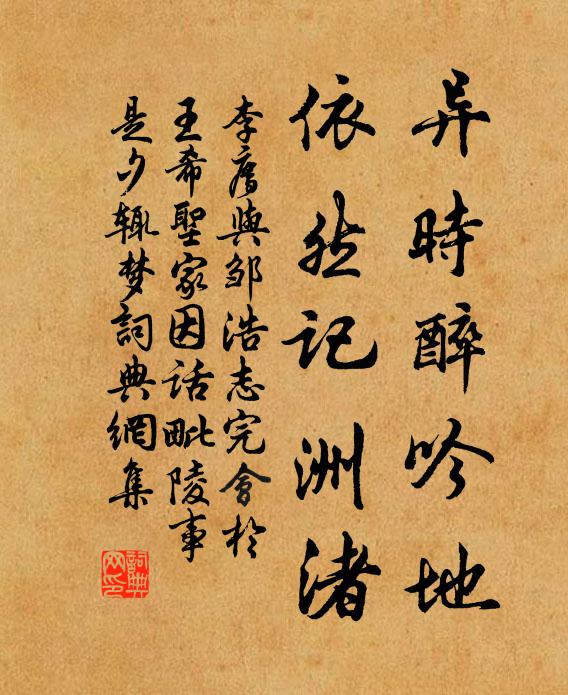 异時醉吟地
依然記洲渚
李廌與鄒浩志完會於
王希聖家因話毗陵事
是夕輒梦詞典網集
詞典
网印